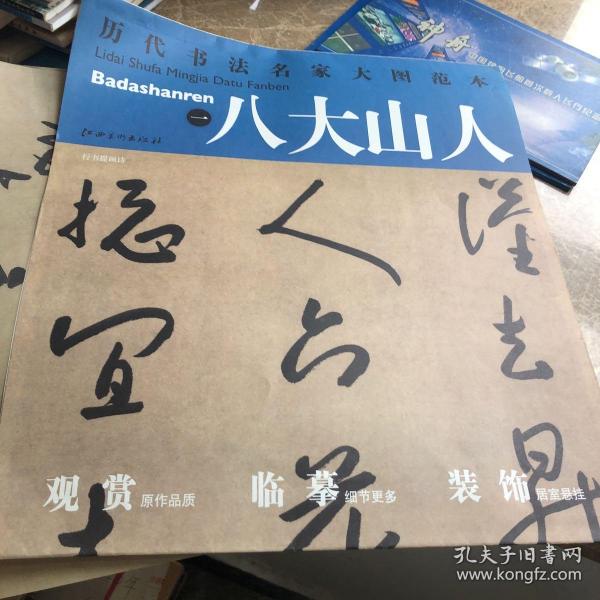 历代书法名家大图范本
Lidai Shufa Mingjia Datu Fanben
Badashanren
一 八大山人
江西美术出版社
行书题画诗
人
去
宜
观赏 原作品质
临摹 细节更多
装饰 居室悬挂
神舟
孔夫子旧书网
www.kongfz.com